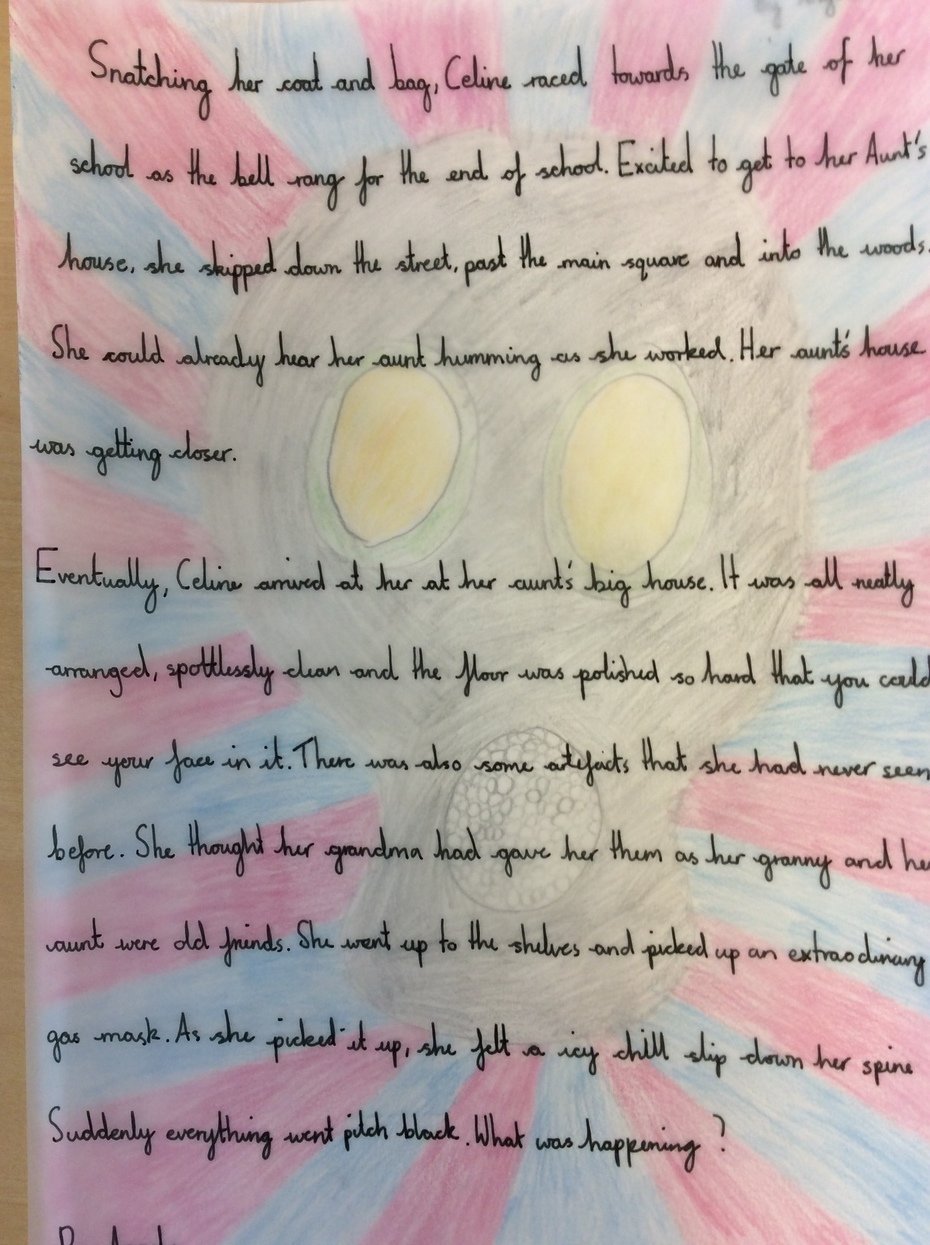 Snatching her coat and bag, Celine raced towards the gate of her
school as the bell rang for the end of school. Excited to get to her Aunt's
house, she skipped down the street, past the main square and into the woods.
She could already hear her aunt humming as she worked. Her aunt's house
was getting closer.
Eventually, Celine arrived at her at her aunt's big house. It was all neatly
arranged, spottlessly clean and the floor was polished so hard that you could
see your face in it. There was also some artefacts that she had never seen
before. She thought her grandma had gave her them as her granny and he
aunt were old friends. She went up to the shelves and picked up an extraodinary
gas mask. As she picked it up, she felt a icy chill slip down her spine
Suddenly everything went pitch black. What was happening ?